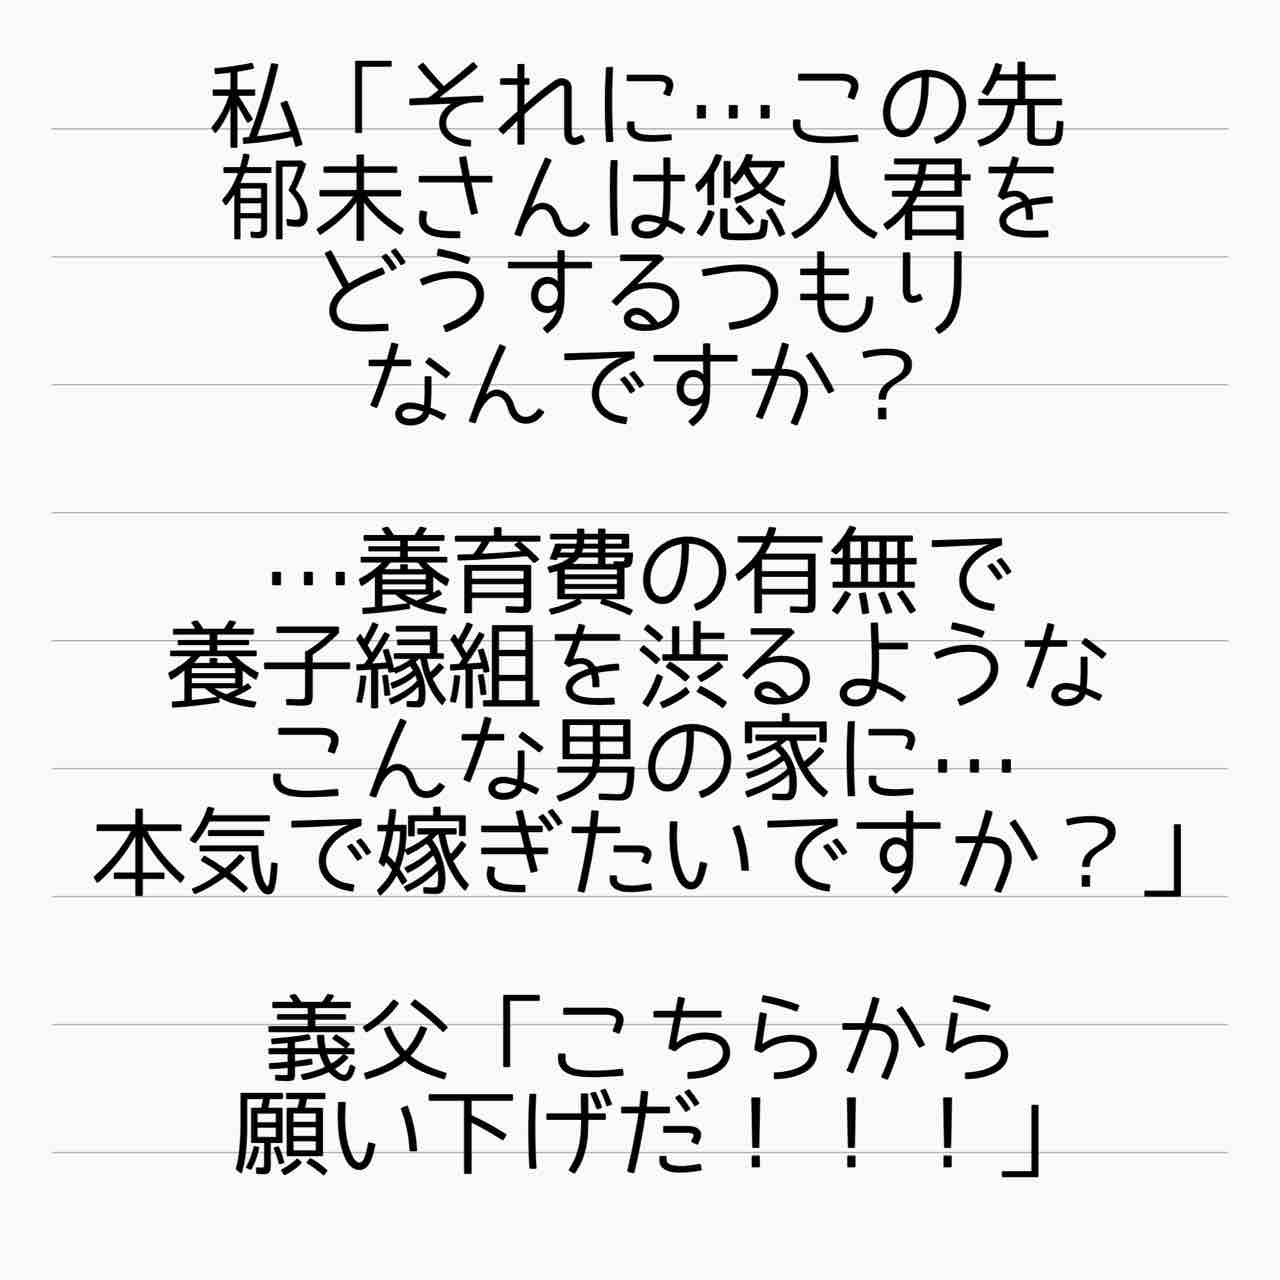 私「それに…この先
郁未さんは悠人君を
どうするつもり
なんですか？
…養育費の有無で
養子縁組を渋るような
こんな男の家に…
本気で嫁ぎたいですか？」
義父「こちらから
願い下げだ！！！」